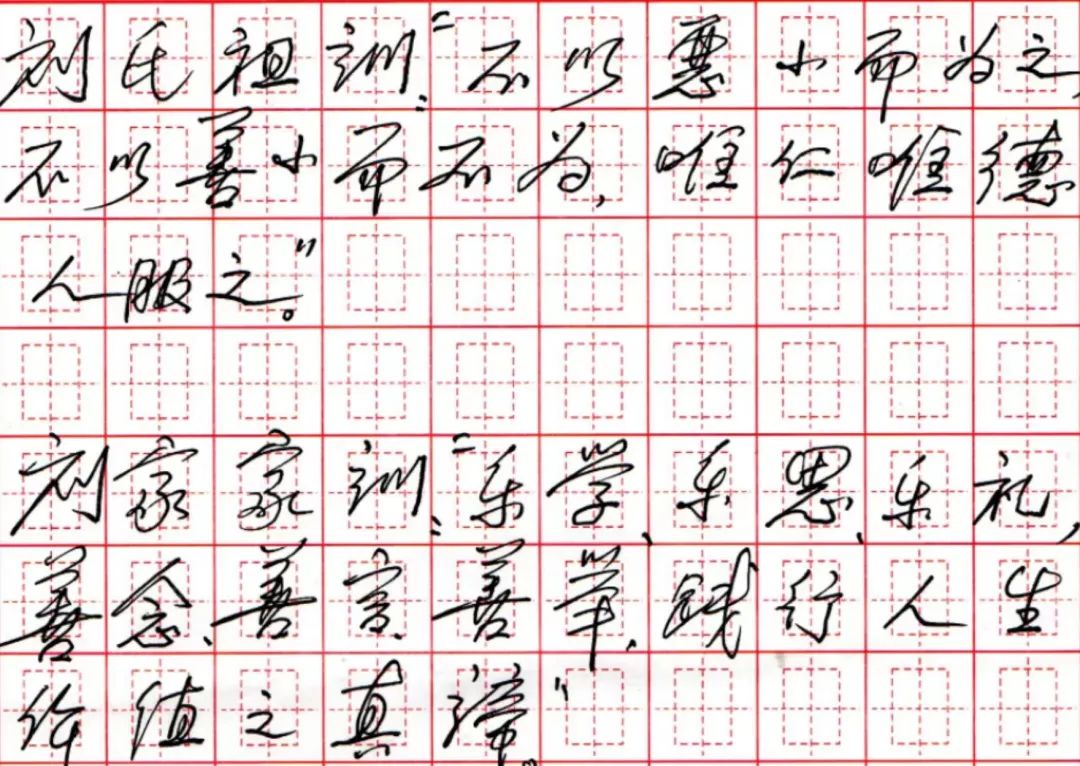 刘氏祖训："不以恶小而为之，
不以善小而不为，唯仁唯德
人服之。"
刘家家训："乐学、乐思、乐礼，
善念、善言、善举，践行人生
价值之真谛。"